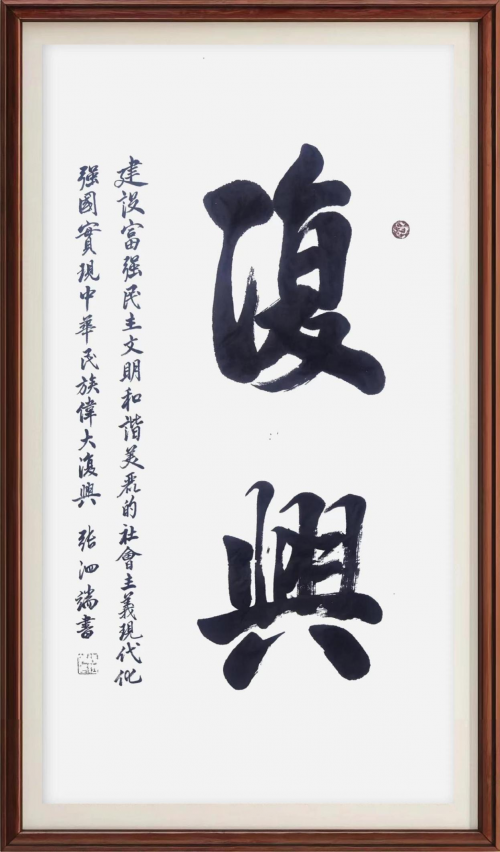 復興
建设富强民主文明和諧美麗的社會主義現代化
强國實現中華民族偉大復興 张泗端書